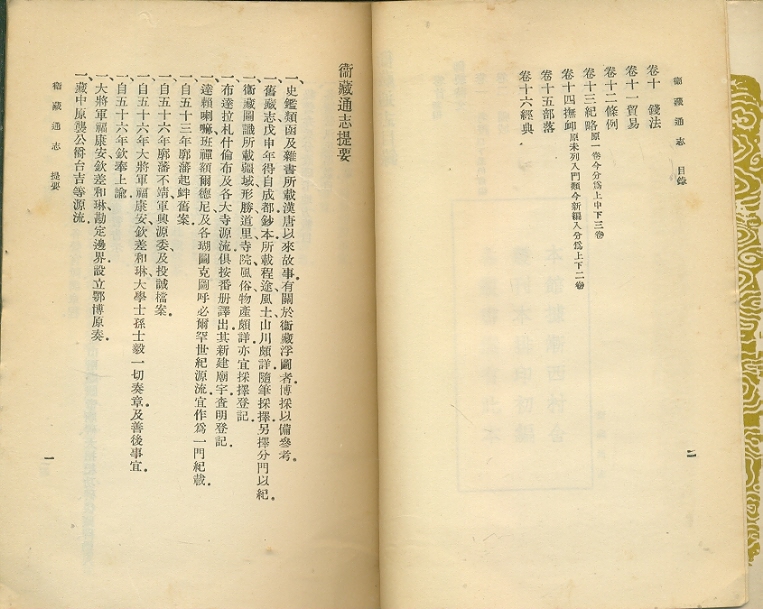 衞藏通志 目錄
卷十 錢法
卷十一貿易
卷十二條例
卷十三紀略原一卷今分爲上中下三卷
卷十四撫䘏原未列入門類今新編入分爲上下二卷
卷十五部落
卷十六經典
二
衞藏通志提要
一、史鑑類函及雜書所載漢唐以來故事有關於衞藏浮圖者博採以備參考。
一、舊藏志戊申年得自成都鈔本所載程途風土山川頗詳隨筆採擇另擇分門以紀。
一、衞藏圖識所載疆域形勝道里寺院風俗物產頗詳亦宜採擇登記。
一、布達拉札什倫布及各大寺源流俱按番册譯出其新建廟宇查明登記。
一、達賴喇嘛班禪額爾德尼及各瑚圖克圖呼必爾罕世紀源流宜作爲一門紀載。
一、自五十三年廓藩起衅舊案。
一、自五十六年廓藩不靖軍興源委及投誠檔案。
一、自五十六年大將軍福康安欽差和琳大學士孫士毅一切奏章及善後事宜。
一、自五十六年欽奉上諭。
一、大將軍福康安欽差和琳勘定邊界設立鄂博原奏。
一、藏中原襲公衞台吉等源流。
衞藏通志 提要
一